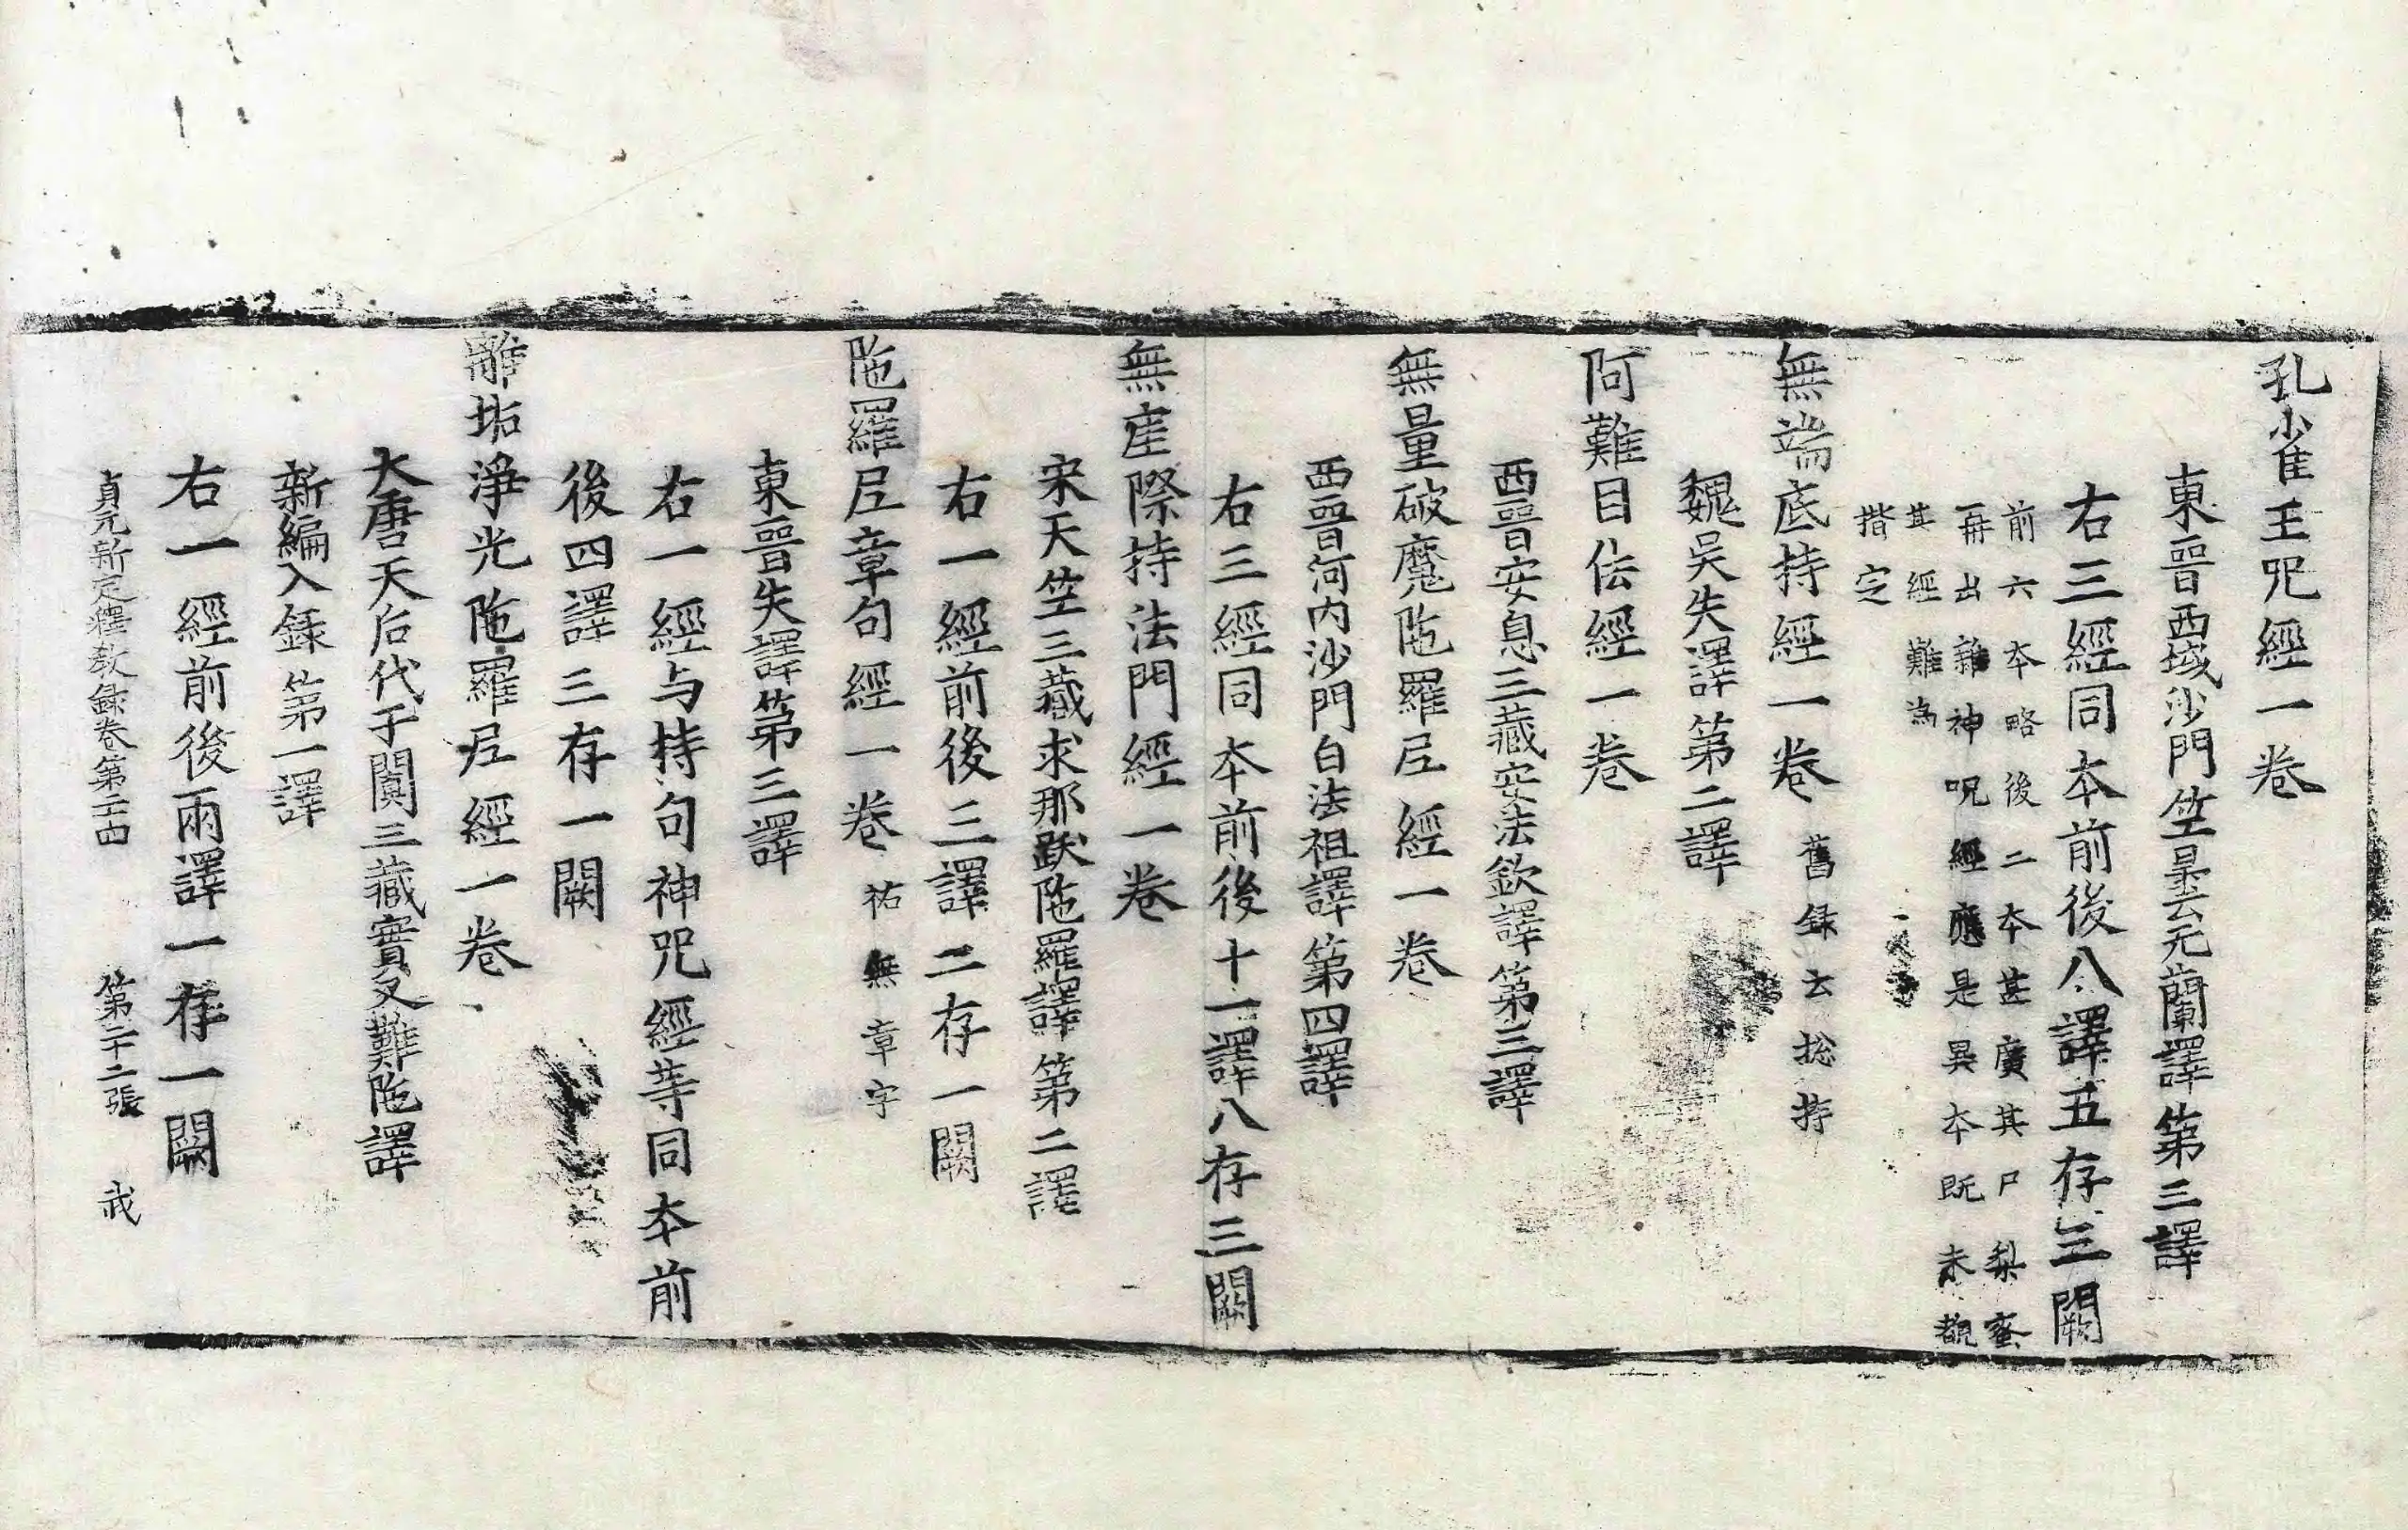 孔雀王呪經一卷
東晉西域沙門竺曇无蘭譯第三譯
右三經同本前後八譯五存三闕
前六本略後二本甚廣其尸梨蜜
再出雜神呪經應是異本既未覩
其經難為
揩定
無端底持經一卷 舊録云捴持
魏吳失譯第二譯
阿難目佉經一卷
西晉安息三藏安法欽譯第三譯
無量破魔陁羅尼經一卷
西晉河内沙門白法祖譯第四譯
右三經同本前後十一譯八存三闕
無崖際持法門經一卷
宋天竺三藏求那跋陁羅譯第二譯
右一經前後三譯二存一闕
陁羅尼章句經一卷 祐無章字
東晉失譯第三譯
右一經与持句神呪經等同本前
後四譯三存一闕
離垢淨光陁羅尼經一卷
大唐天后代于闐三藏實叉難陁譯
新編入録第一譯
右一經前後兩譯一存一闕
貞元新定釋教録卷第二十四 第二十二張 戎